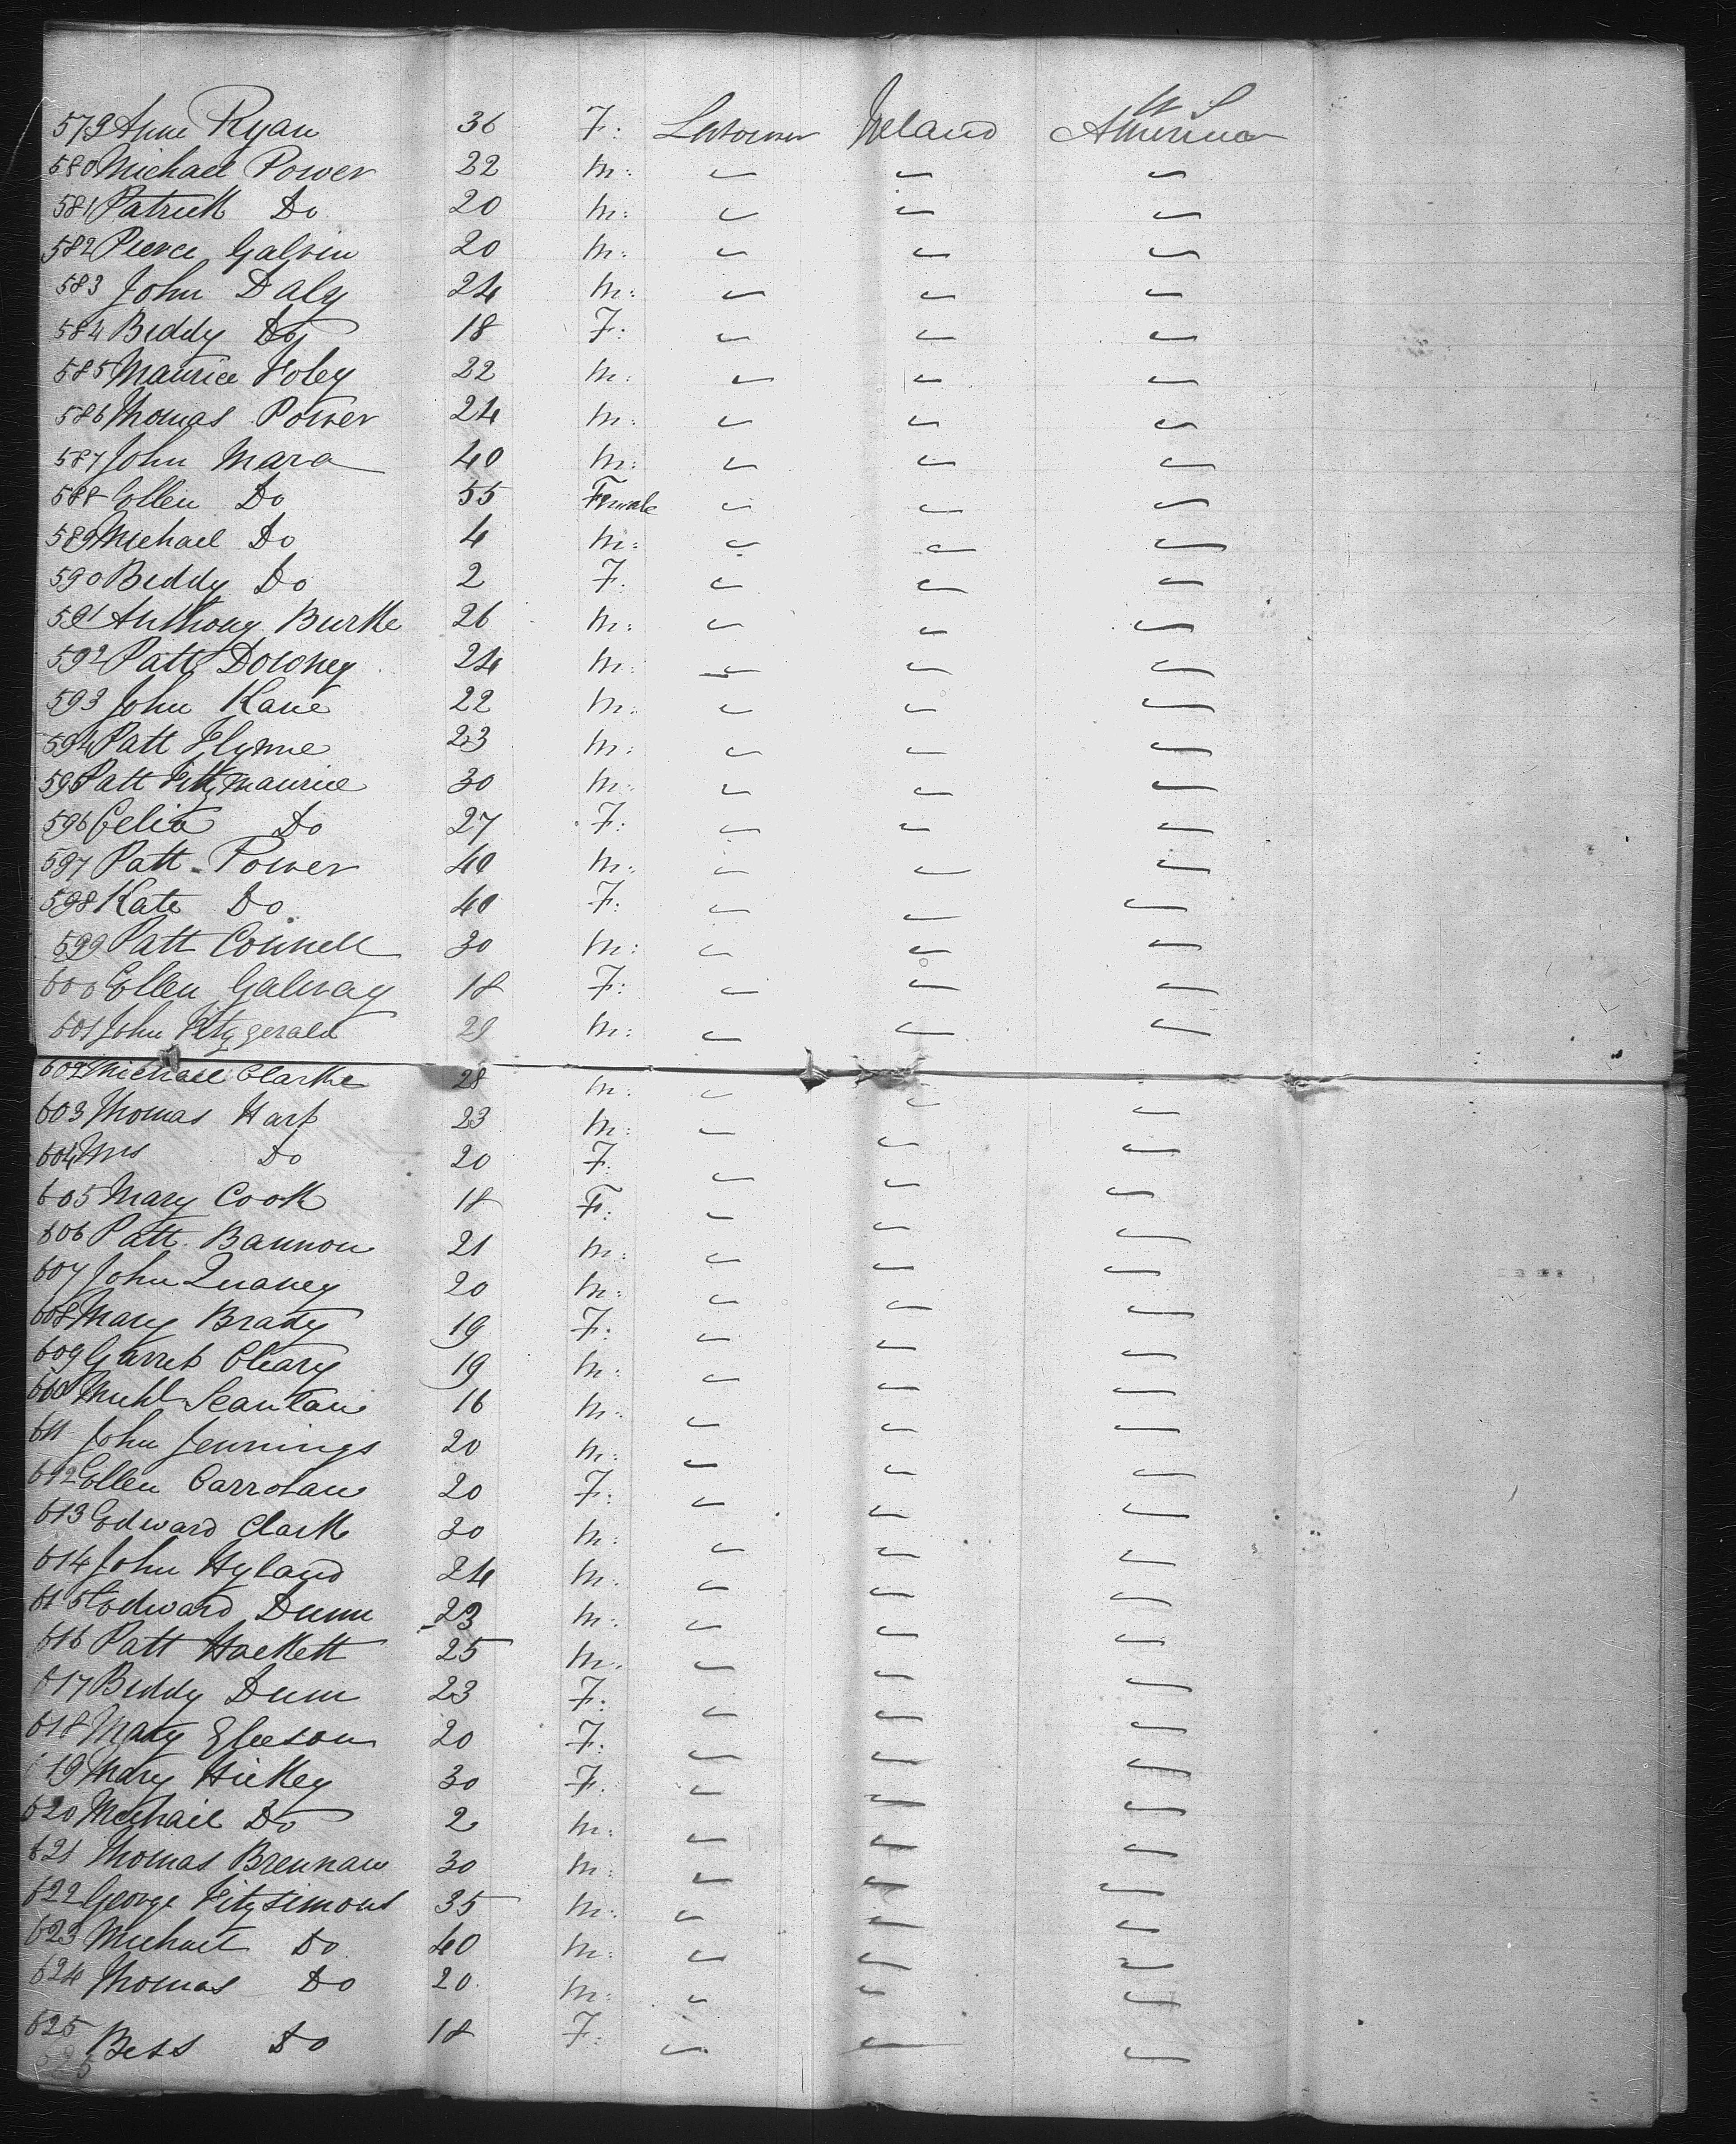 579 Anne Ryan 36 F: Labourer Ireland U S America
580 Michael Power 22 m: " " "
581 Patrick Do 20 m: " " "
582 Pierce Galvin 20 m: " " "
583 John Daly 24 m: " " "
584 Biddy Do 18 F: " " "
585 Maurice Foley 22 m: " " "
586 Thomas Power 24 m: " " "
587 John Mara 40 m: " " "
588 Ellen Do 55 Female " " "
589 Michael Do 4 m: " " "
590 Biddy Do 2 F: " " "
591 Anthony Burke 26 m: " " "
592 Patt Doloney 24 m: " " "
593 John Kane 22 m: " " "
594 Patt Flynne 23 m: " " "
595 Patt Fitzmaurice 30 m: " " "
596 Celia Do 27 F: " " "
597 Patt Power 40 m: " " "
598 Kate Do 40 F: " " "
599 Patt Connell 30 m: " " "
600 Ellen Galway 18 F: " " "
601 John Fitzgerald 29 m: " " "
602 Michael Clarke 28 m: " "
603 Thomas Hart 23 m: " " "
604 Mrs Do 20 F: " " "
605 Mary Cook 18 F: " " "
606 Patt Bannon 21 m: " " "
607 John Quaney 20 m: " " "
608 Mary Brady 19 F: " " "
609 Garret Cleary 19 m: " " "
610 Michl Scanlan 16 m: " " "
611 John Jennings 20 m: " " "
612 Ellen Carrolan 20 F: " " "
613 Edward Clark 30 m: " " "
614 John Hyland 24 m: " " "
615 Edward Dunn 23 m: " " "
616 Patt Hackett 25 m: " " "
617 Biddy Dunn 23 F: " " "
618 Mary Gleeson 20 F: " " "
619 Mary Hickey 30 F: " " "
620 Michael Do 2 m: " " "
621 Thomas Brennan 30 m: " " "
622 George Fitzsimons 35 m: " " "
623 Michael Do 40 m: " " "
624 Thomas Do 20 m: " " "
625 Bess Do 18 F: " " "